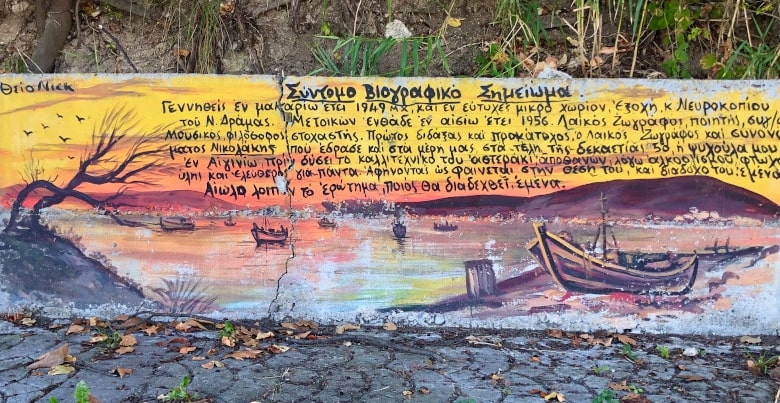 Θείο Νick
Σύντομο Βιογραφικό Σημείωμα.
Γεννηθείς εν μακαρίω έτει 1949 π.χ. και εν ευτυχές μικρό χωρίον, εξοχή, κ. Νευροκοπίου
του Ν. Δράμας. Μετοικών ενθάδε εν αισίω έτει 1956. Λαϊκός Ζωγράφος, ποιητής,
Μουδικος, φιλόσοφος στοχαστής. Πρώτος διδάξας και προκάτοχος, ο Λαϊκός Ζωγράφος και συνον
ματος Νικολάκης που έδρασε και στα μέρη μας, στα τέλη της δεκαετίας 50, η ψυχούλα μου
εν Αιγινίω πριν δύσει το καλλιτεχνικό του αστεράκι, αποθανών λόγω αλκοολισμού,
ύλη και ελεύθερα για πάντα. Αφήνοντας ως φαίνεται στην θέση του, και διάδοχό του, εμένα
Αιωλο λοιπόν το ερώτημα, ποιος θα διαδεχθεί, εμένα.